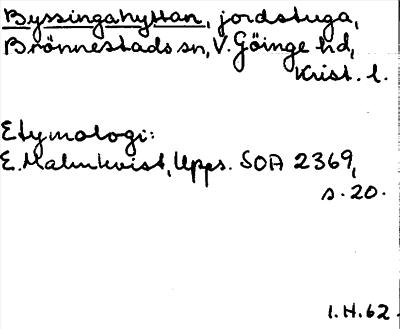 Byssingahyttan, jordstuga,
Brönnestads sn, V. Göinge hd,
Krist. l.
Etymologi:
E. Malmkvist, Upps. SOA 2369,
s. 20.
I.H.62.